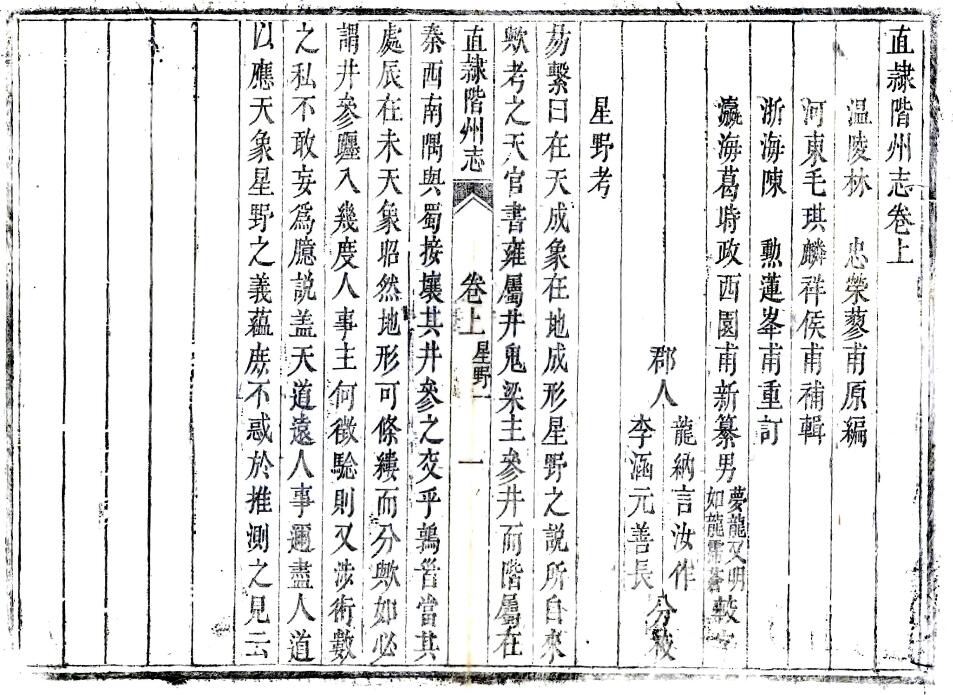 直隷階州志卷上
温陵林　忠榮蓼甫原編
河東毛琪麟祥侯甫補輯
浙海陳　勲蓮峯甫重訂
瀛海葛時政西園甫新纂男
夢龍又明
如龍霈蒼
較字
郡人
龍納言汝作
李涵元善長
分較
星野考
昜繫曰在天成象在地成形星野之說所自來
歟考之天官書雍屬井鬼梁主參井而階屬在
直隷階州志
卷上
星野
一
秦西南隅與蜀接壤其井參之交乎鶉首當其
處辰在未天象昭然地形可條縷而分歟如必
謂井參躔入幾度人事主何徵騐則又涉術數
之私不敢妄爲臆説盖天道遠人事邇盡人道
以應天象星野之義蘊庻不惑於推測之見云